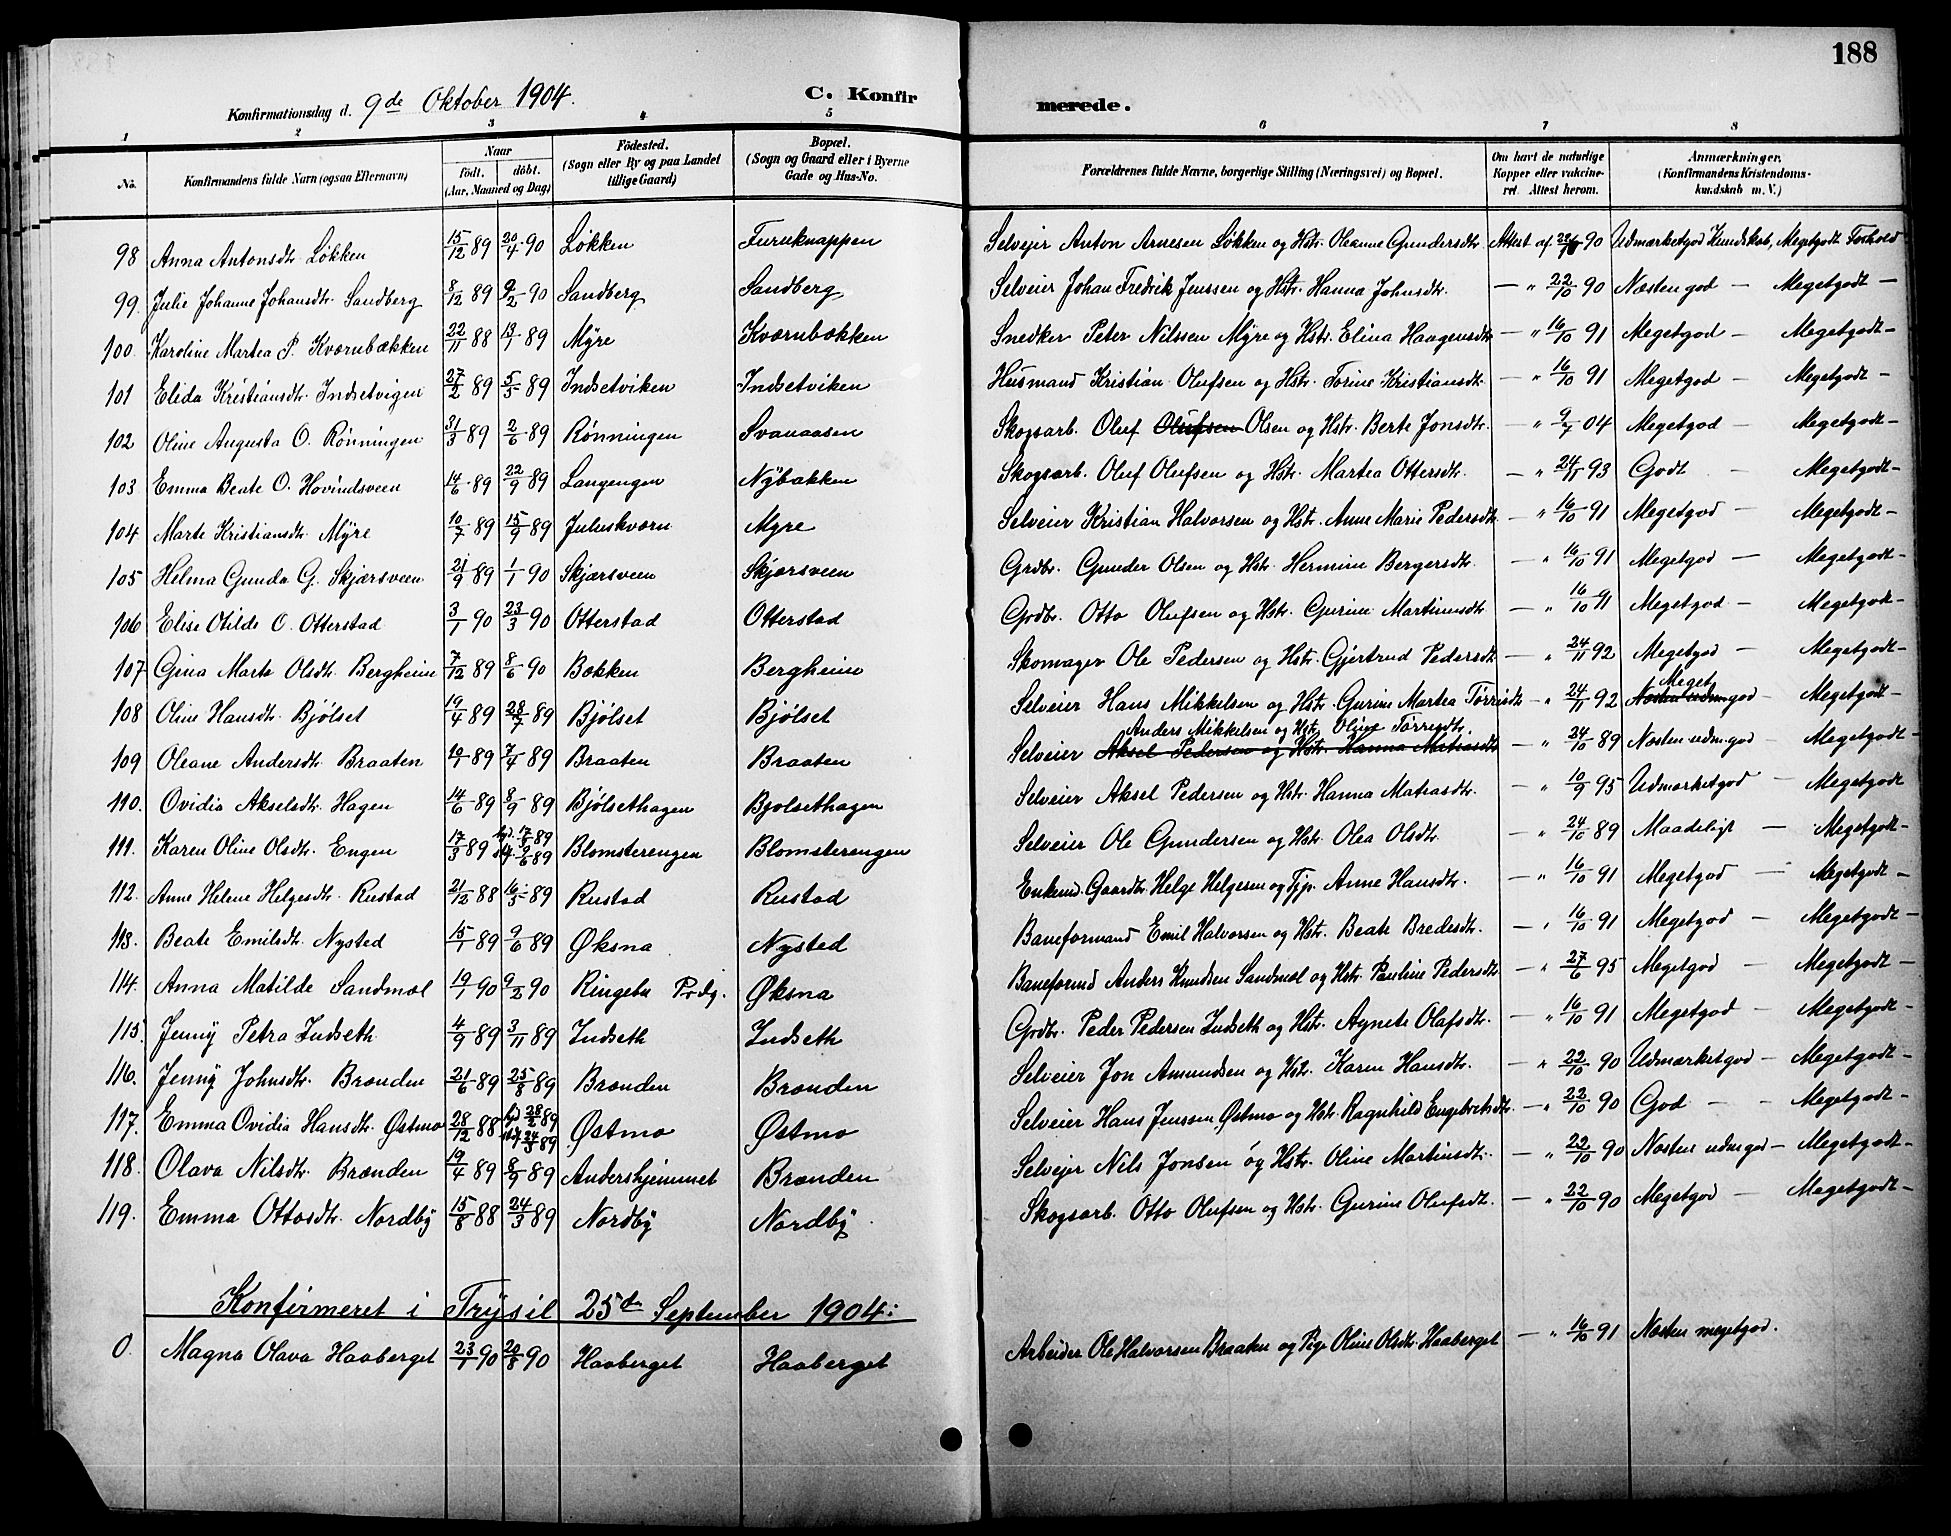 188
Konfirmationsdag d. 9de Oktober 1904. C. Konfirmerede.
1 2 3 4 5 6 7 8
No. Konfirmandens fulde Navn (ogsaa Efternavn) Naar födt. döbt. (Aar, Maaned og Dag) Födested. (Sogn eller By og paa Landet tillige Gaard) Bopæl. (Sogn og Gaard eller i Byerne Gade og Hus-No. Forældrenes fulde Navne, borgerlige Stilling (Næringsvei) og Bopæl. Om havt de naturlige Kopper eller vakcineret. Attest herom. Anmærkninger. (Konfirmandens Kristendomskundskab m. V.)
98 Anna Antonsdtr. Løkken 15/12 89 20/4 90 Løkken Furuknappen Selveier Anton Arnesen Løkken og Hstr. Oleanne Gundersdtr. Attest af 90 Udmærketgod Kundskab, Megetgodt Forhold
99. Julie Johanne Johansdtr. Sandberg 8/12 89 9/2 90 Sandberg Sandberg Selveier Johan Fredrik Jenssen og Hstr. Hanna Johnsdtr. — " 22/10 90 Næsten god — Megetgodt —
100. Karoline Martea P. Kværnbækken 22/11 88 13/1 89 Myre Kværnbækken Snedker Peter Nilssen Myre og Hstr. Elina Haagensdtr. — " 16/10 91 Megetgod — Megetgodt —
101 Elida Kristiansdtr. Indsetvigen 27/2 89 5/5 89 Indsetviken Indsetviken Husmand Kristian Olufsen og Hstr. Torine Kristiansdtr. — " 16/10 91 Megetgod — Megetgodt —
102 Oline Augusta O. Rønningen 31/3 89 2/6 89 Rønningen Svanaasen Skogsarb. Oluf Olufsen Olsen og Hstr. Berte Jonsdtr. — " 9/7 04 Megetgod — Megetgodt —
103 Emma Beate O. Hovindsveen 14/6 89 22/9 89 Langengen Nybakken Skogsarb. Oluf Olufsen og Hstr. Martea Ottersdtr. — " 93 Godt — Megetgodt —
104 Marte Kristiansdtr. Myre 10/7 89 15/9 89 Juliuskværn Myre Selveier Kristian Halvorsen og Hstr. Anne Marie Pedersdtr. — " 16/10 91 Megetgod — Megetgodt —
105 Helma Gunda G. Skjærsveen 21/9 89 1/1 90 Skjærsveen Skjærsveen Grdbr. Gunder Olsen og Hstr. Hermine Bergersdtr. — " 16/10 91 Megetgod — Megetgodt —
106 Elise Otilde O. Otterstad 3/1 90 23/3 90 Otterstad Otterstad Grdbr. Otto Olufsen og Hstr. Gurine Martinusdtr. — " 16/10 91 Megetgod — Megetgodt —
107 Gina Marte Olsdtr. Bergheim 7/12 89 8/6 90 Bækken Bergheim Skomager Ole Pedersen og Hstr. Gjertrud Pedersdtr. — " 24/11 92 Megetgod — Megetgodt —
108 Oline Hansdtr. Bjølset 19/4 89 28/7 89 Bjølset Bjølset Selveier Hans Mikkelsen og Hstr. Gurine Martea Tørrisdtr. — " 24/11 92 Næsten udm. Meget god — Megetgodt —
109 Oleane Andersdtr. Braaten 89 7/4 89 Braaten Braaten Selveier Aksel Pedersen og Hstr. Hanna Matiasdtr. Anders Mikkelsen og Hstr. Oline Tørrisdtr. — " 24/10 89 Næsten udm. god — Megetgodt —
110. Ovidia Akselsdtr. Hagen 14/6 89 8/9 89 Bjølsethagen Bjølsethagen Selveier Aksel Pedersen og Hstr. Hanna Matiasdtr. — " 10/9 95 Udmærketgod — Megetgodt
111. Karen Oline Olsdtr. Engen 17/3 89 89 89 Blomsterengen Blomsterengen Selveier Ole Gundersen og Hstr. Olea Olsdtr. — " 24/10 89 Maadeligt — Megetgodt —
112. Anne Helene Helgesdtr. Rustad 21/12 88 16/5 89 Rustad Rustad Enkem. Gaardbr. Helge Helgesen og Tjp. Anne Hansdtr. — " 16/10 91 Megetgod — Megetgodt —
113. Beate Emilsdtr. Nysted 15/1 89 9/6 89 Øksna Nysted Baneformand Emil Halvorsen og Hstr. Beate Bredesdtr. — " 16/10 91 Megetgod — Megetgodt —
114. Anna Matilde Sandmæl 19/1 90 9/2 90 Ringebu Prdg. Øksna Baneformd Anders Knudsen Sandmæl og Hstr. Pauline Pedersdtr. — " 27/6 95 Megetgod — Megetgodt —
115. Jenny Petra Indseth 4/9 89 3/11 89 Indseth Indseth Grdbr. Peder Pedersen Indseth og Hstr. Agnete Olafsdtr. — " 16/10 91 Megetgod — Megetgodt —
116. Jenny Johnsdtr. Brænden 21/6 89 25/8 89 Brænden Brænden Selveier Jon Amundsen og Hstr. Karen Hansdtr. — " 22/10 90 Udmærketgod — Megetgodt —
117. Emma Ovidia Hansdtr. Østmo 28/12 88 89 89 Østmo Østmo Selveier Hans Jenssen Østmo og Hstr. Ragnhild Engebretsdtr. — " 22/10 90 God — Megetgodt —
118. Olava Nilsdtr. Brænden 19/4 89 8/9 89 Andershjemmet Brænden Selveier Nils Jonsen og Hstr. Oline Martinsdtr. — " 22/10 90 Næsten udm. god — Megetgodt —
119. Emma Ottosdtr. Nordby 15/8 88 24/3 89 Nordby Nordby Skogsarb. Otto Olufsen og Hstr. Gurine Olufsdtr. — " 22/10 90 Megetgod — Megetgodt —
Konfirmeret i Trysil 25de September 1904:
0. Magna Olava Haaberget 23/1 90 20/8 90 Haaberget Haaberget Arbeider Ole Halvorsen Braaten og Pige Oline Olsdtr. Haaberget — " 16/10 91 Næsten megetgod.